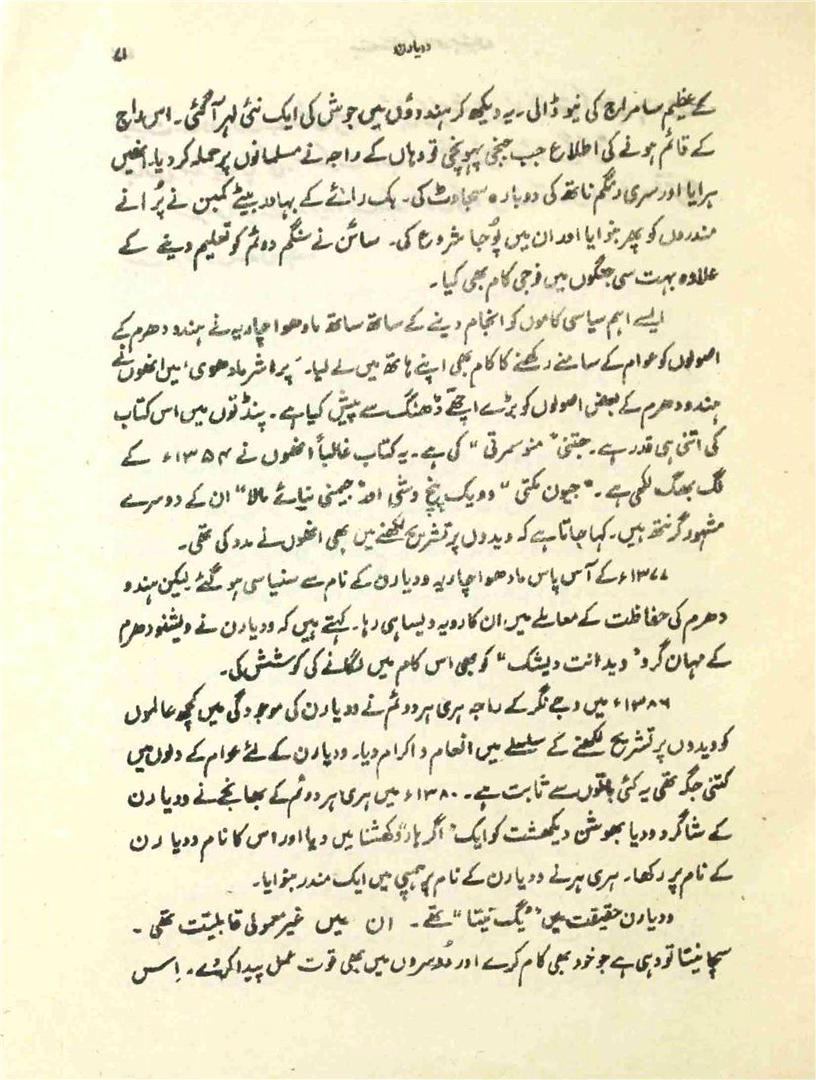 ودیارن ۷۱
کے عظیم سامراج کی نیو ڈالی۔ یہ دیکھ کر ہندوؤں میں جوش کی ایک نئی لہر آ گئی۔ اس راج
کے قائم ہونے کی اطلاع جب جنجی پہونچی تو وہاں کے راجہ نے مسلمانوں پر حملہ کر دیا۔ انھیں
ہرایا اور سری رنگم ناتھ کی دوبارہ سجاوٹ کی۔ بک رائے کے بہادر بیٹے کمپن نے پُرانے
مندروں کو پھر بنوایا اور ان میں پُوجا شروع کی۔ سائن نے سنگم دوئم کو تعلیم دینے کے
علاوہ بہت سی جگہوں میں فوجی کام بھی کیا۔
ایسے اہم سیاسی کاموں کو انجام دینے کے ساتھ ساتھ مادھوا چاریہ نے ہندو دھرم کے
اصولوں کو عوام کے سامنے رکھنے کا کام بھی اپنے ہاتھ میں لے لیا۔ ”پراشر مادھوی‘ میں انھوں نے
ہندو دھرم کے بعض اصولوں کو بڑے اچھے ڈھنگ سے پیش کیا ہے۔ پنڈتوں میں اس کتاب
کی اتنی ہی قدر ہے۔ جتنی ”منوسمرتی“ کی ہے۔ یہ کتاب غالباً انھوں نے ۱۳۵۴ء کے
لگ بھگ لکھی ہے۔ ”جیون مکتی“ وویک پنچ دشی اور ”جیمنی نیائے مالا“ ان کے دوسرے
مشہور گرنتھ ہیں۔ کہا جاتا ہے کہ ویدوں پر تشریح لکھنے میں بھی انھوں نے مدد کی تھی۔
۱۳۷۷ء کے آس پاس مادھوا چاریہ ودیارن کے نام سے سنیاسی ہو گئے لیکن ہندو
دھرم کی حفاظت کے معاملے میں ان کا رویہ ویسا ہی رہا۔ کہتے ہیں کہ ودیارن نے ویشنو دھرم
کے مہان گرو ”ویدانت دیشک“ کو بھی اس کام میں لگانے کی کوشش کی۔
۱۳۸۶ء میں وجے نگر کے راجہ ہری ہر دوئم نے ودیارن کی موجودگی میں کچھ عالموں
کو ویدوں پر تشریح لکھنے کے سلسلے میں انعام و اکرام دیا۔ ودیارن کے لئے عوام کے دلوں میں
کتنی جگہ تھی یہ کئی باتوں سے ثابت ہے۔ ۱۳۸۰ء میں ہری ہر دوئم کے بھانجے نے ودیارن
کے شاگرد ودیا بھوشن دیکھشت کو ایک ”اگرہار“ دکھشنا میں دیا اور اس کا نام ودیا رن
کے نام پر رکھا۔ ہری ہر نے ودیارن کے نام پر ہمپی میں ایک مندر بنوایا۔
ودیارن حقیقت میں ”یگ نیتا“ تھے۔ ان میں غیر معمولی قابلیّت تھی۔
سچا نیتا تو وہی ہے جو خود بھی کام کرے اور دُوسروں میں بھی قوت عمل پیدا کر دے۔ اِس